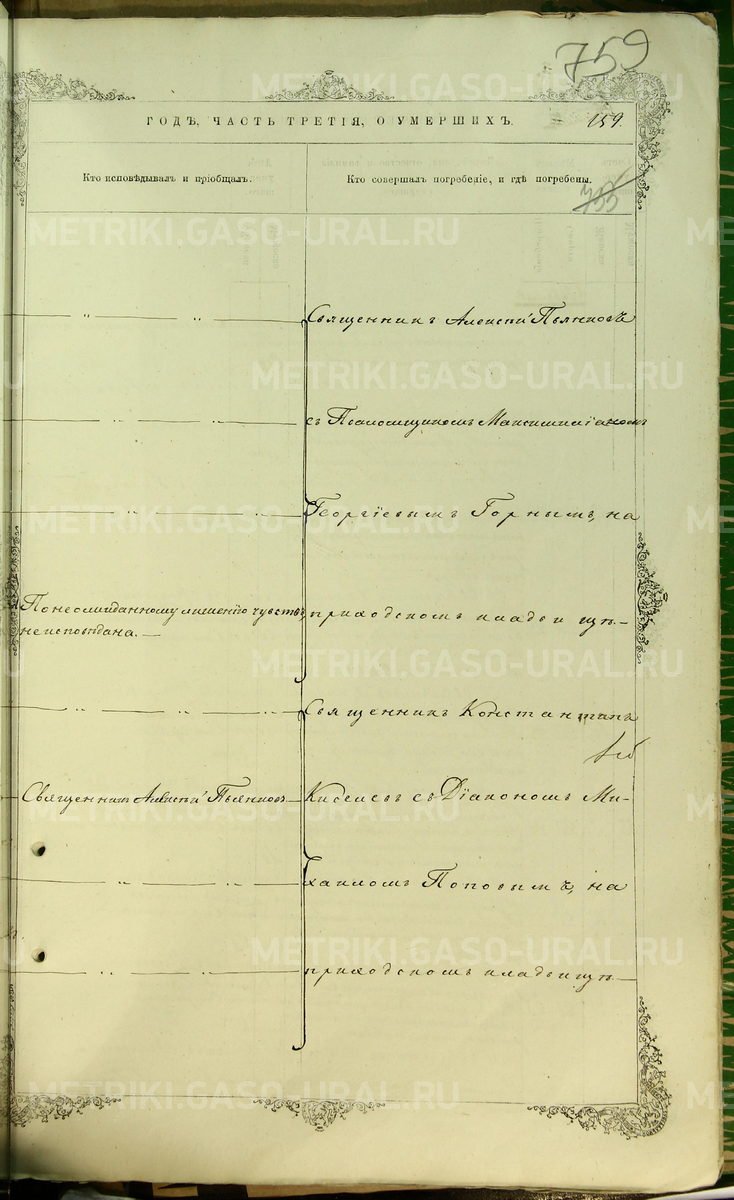 759
ГОДѢ, ЧАСТЬ ТРЕТІЯ, О УМЕРШИХЪ.
159.
Кто исповѣдывалъ и пріобщалъ.
Кто совершалъ погребеніе, и гдѣ погребены.
755
METRIKI.GASO-URAL.RU
Священникъ Алексій Пьянковъ
съ Псаломщикомъ Максимиліаномъ
Георгіевымъ Горнымъ, на
По неожиданному лишенію чувствъ,
не исповѣдана. —
приходскомъ кладбищѣ —
Священникъ Константинъ
Священникъ Алексій Пьянковъ —
Киселевъ съ Діакономъ Ми-
хаиломъ Поповымъ, на
приходскомъ кладбищѣ —